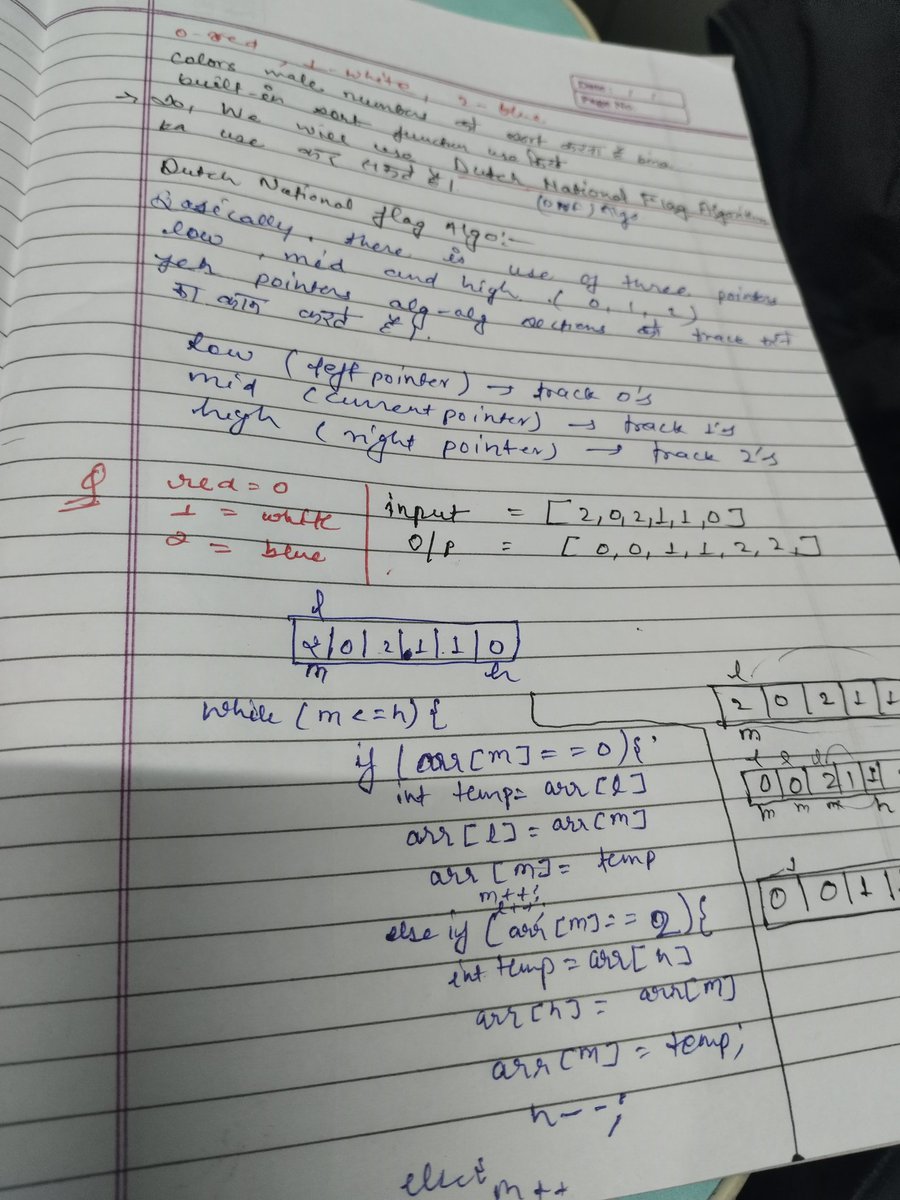 0-red, 1-white, 2-blue
Date: / /
Page No.
colors male numbers को sort करना है bina
built-in sort function use किए
→ So, We will use Dutch National Flag Algorithm
ka use कर सकते है।
(DNF) Algo
Dutch National flag Algo:-
Basically, there is use of three pointers
low, mid and high. (0, 1, 2)
yeh pointers alg-alg sections को track
का काम करते है।
low (left pointer) → track 0's
mid (current pointer) → track 1's
high (right pointer) → track 2's
Q
red = 0
1 = white
2 = blue
input = [2,0,2,1,1,0]
O/p = [0,0,1,1,2,2,]
l
2|0|2|1|1|0
m h
while (m <= h) {
if (arr[m] == 0){
int temp= arr[l]
arr[l] = arr[m]
arr[m]= temp
m++;
l++;
else if (arr[m]== 2){
int temp = arr[h]
arr[h] = arr[m]
arr[m] = temp;
h--;
else
m++
l
2|0|2|1|1
m
l l l
0|0|2|1|1
m m m h
0|0|1|1